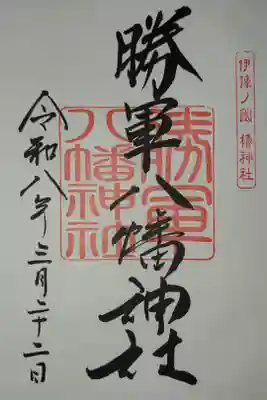 伊陳ノ国 椿神社
勝軍八幡神社
勝軍
八幡神社
令和八年三月二十二日